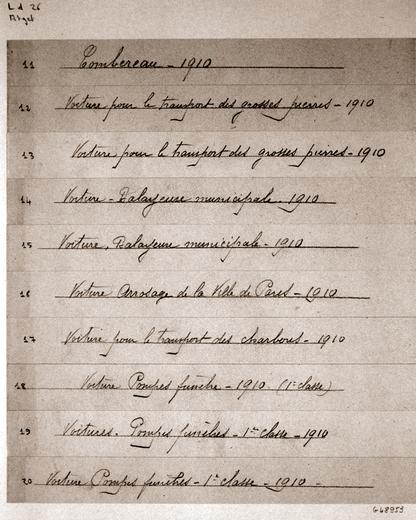 Ld 26
Atget
11 Tombereau - 1910
12 Voiture pour le transport des grosses pierres - 1910
13 Voiture pour le transport des grosses pierres - 1910
14 Voiture - Balayeuse municipale. 1910
15 Voiture, Balayeuse municipale - 1910
16 Voiture Arrosage de la Ville de Paris - 1910
17 Voiture pour le transport des charbons - 1910
18 Voiture Pompes funèbre - 1910 (1e classe)
19 Voitures. Pompes funèbres - 1re classe - 1910
20 Voiture Pompes funèbres - 1e classe - 1910 -
G48953